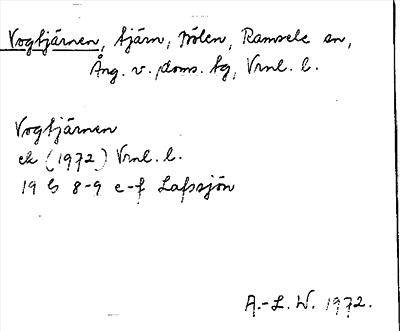 Vogtjärnen, tjärn, Jölen, Ramsele sn,
Ång. v. doms. tg, Vrnl. l.
Vogtjärnen
ek (1972) Vrnl. l.
19 G 8-9 e-f Lafssjön
A.-L. W. 1972.